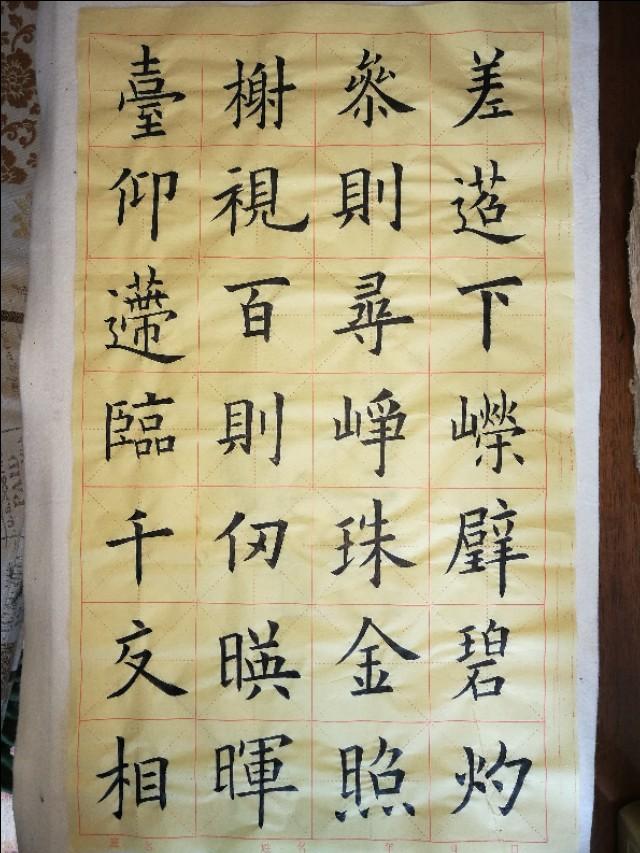 臺榭叅差
仰視則迢
遰百尋下
臨則崢嶸
千仞珠璧
交暎金碧
相暉照灼